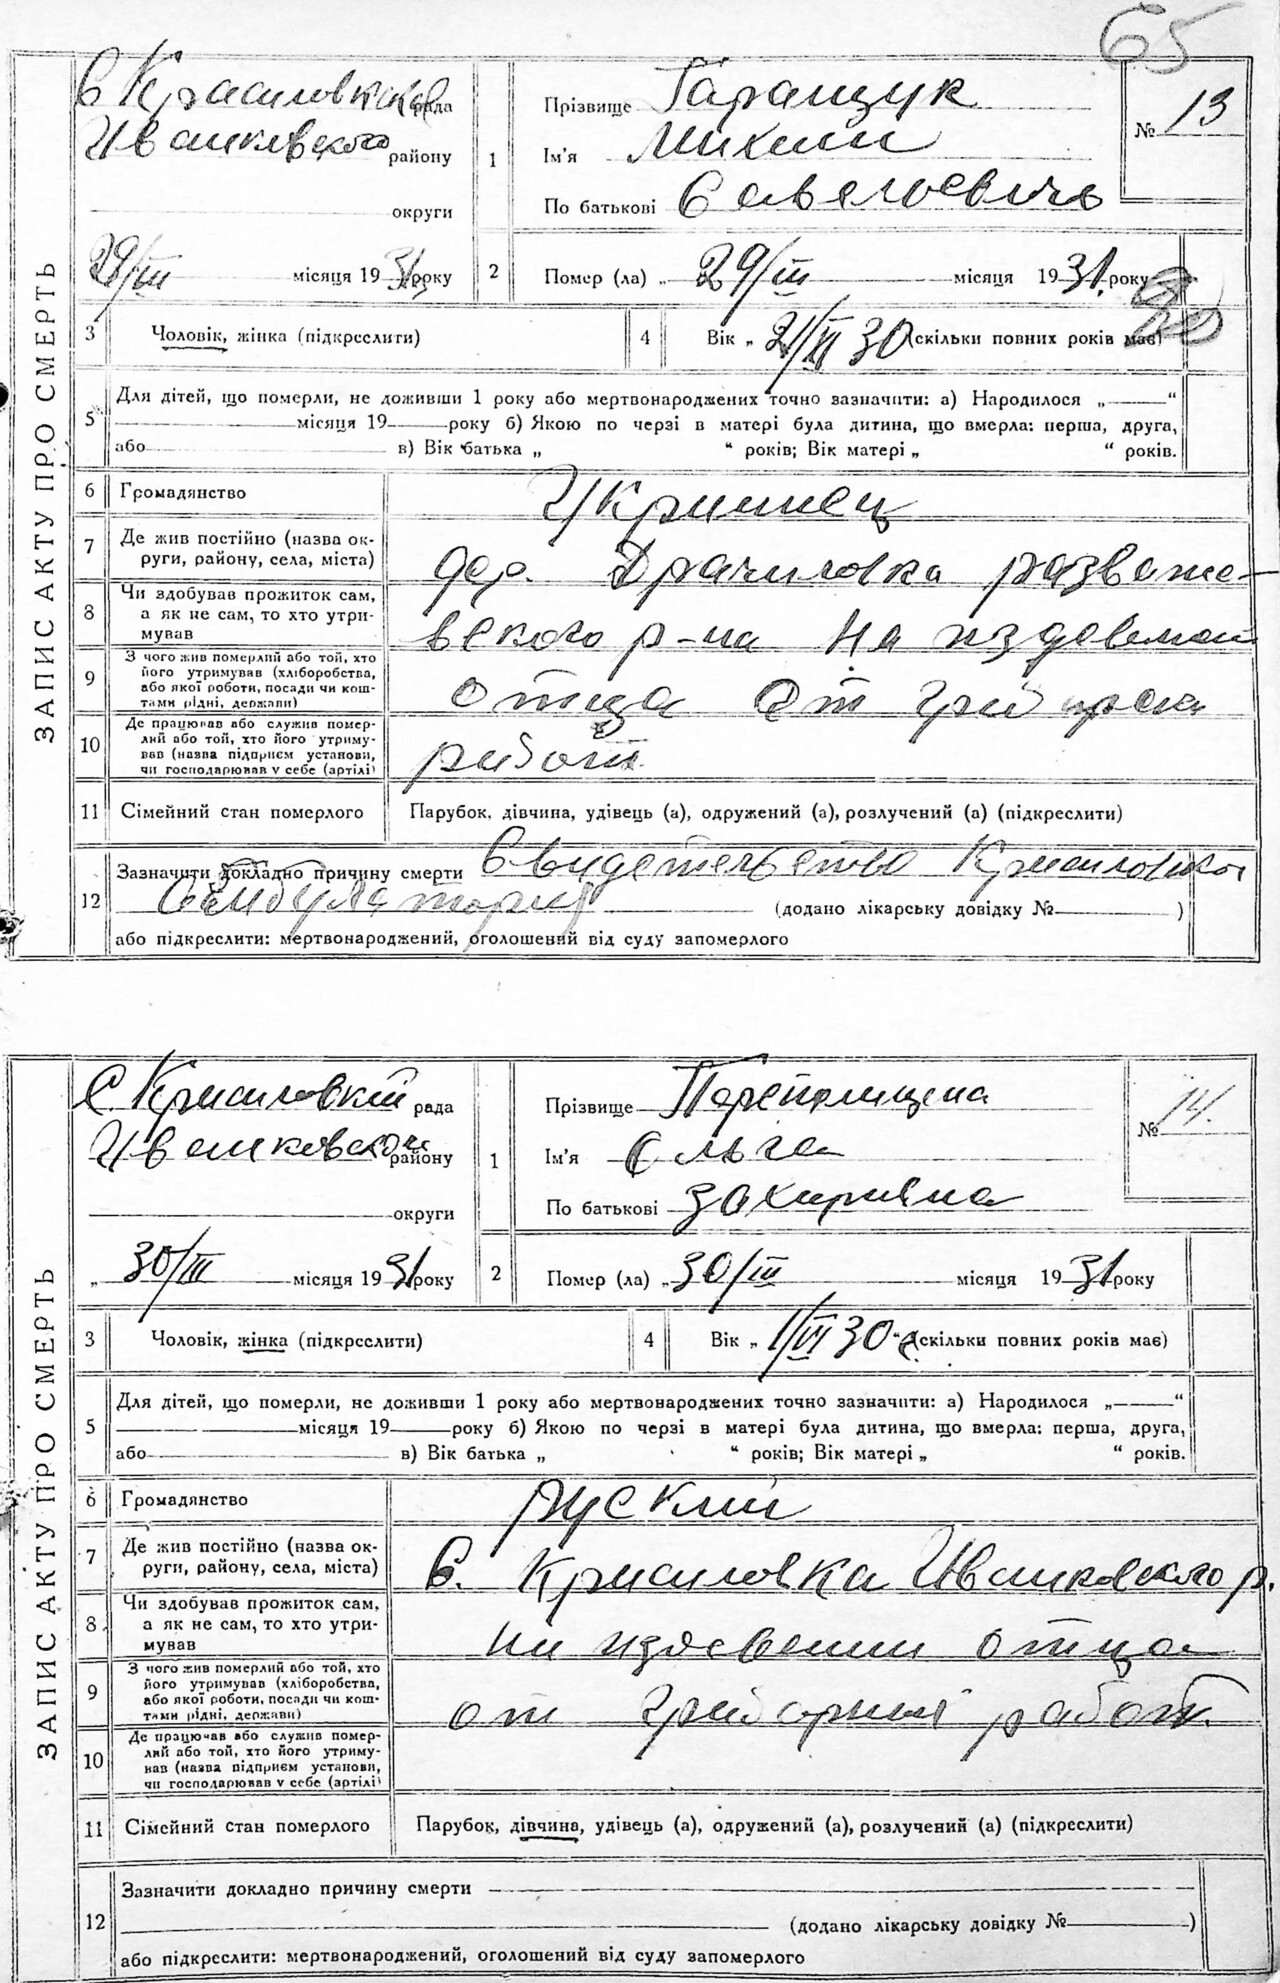 65
ЗАПИС АКТУ ПРО СМЕРТЬ
С Красиловкакая рада
Иванковского району
округи
29/III місяця 1931 року
1 Прізвище Гаращук
Ім'я Михаил
По батькові Савельевичь
№ 13
2 Помер (ла) „29/III місяця 1931. року
3 Чоловік, жінка (підкреслити)
4 Вік „ 21/XI 30 (скільки повних років має)
5 Для дітей, що померли, не доживши 1 року або мертвонароджених точно зазначити: а) Народилося „ “
місяця 19 року б) Якою по черзі в матері була дитина, що вмерла: перша, друга,
або в) Вік батька „ “ років; Вік матері „ “ років.
6 Громадянство Украинец
7 Де жив постійно (назва ок-
руги, району, села, міста) дер. Драчиловка разваже-
8 Чи здобував прожиток сам,
а як не сам, то хто утри-
мував вского р-на На издевении
9 З чого жив померлий або той, хто
його утримував (хліборобства,
або якої роботи, посади чи кош-
тами рідні, держави) отца от
10 Де працював або служив помер-
лий або той, хто його утриму-
вав (назва підприєм установи,
чи господарював у себе (артілі) работ
11 Сімейний стан померлого Парубок, дівчина, удівець (а), одружений (а), розлучений (а) (підкреслити)
12 Зазначити докладно причину смерти Свидетельство Красиловской
Амбулатории (додано лікарську довідку № )
або підкреслити: мертвонароджений, оголошений від суду запомерлого
ЗАПИС АКТУ ПРО СМЕРТЬ
С. Красиловкій рада
Иванковской району
округи
„ 30/III місяця 1931 року
1 Прізвище
Ім'я Ольга
По батькові Захаривна
№ 14.
2 Помер (ла) „30/III місяця 1931 року
3 Чоловік, жінка (підкреслити)
4 Вік „ 1/VI 30 “ (скільки повних років має)
5 Для дітей, що померли, не доживши 1 року або мертвонароджених точно зазначити: а) Народилося „ “
місяця 19 року б) Якою по черзі в матері була дитина, що вмерла: перша, друга,
або в) Вік батька „ “ років; Вік матері „ “ років.
6 Громадянство руский
7 Де жив постійно (назва ок-
руги, району, села, міста) С. Красиловка Иванковского р.
8 Чи здобував прожиток сам,
а як не сам, то хто утри-
мував на издевении отца
9 З чого жив померлий або той, хто
його утримував (хліборобства,
або якої роботи, посади чи кош-
тами рідні, держави) от работ.
10 Де працював або служив помер-
лий або той, хто його утриму-
вав (назва підприєм установи,
чи господарював у себе (артілі)
11 Сімейний стан померлого Парубок, дівчина, удівець (а), одружений (а), розлучений (а) (підкреслити)
12 Зазначити докладно причину смерти
(додано лікарську довідку № )
або підкреслити: мертвонароджений, оголошений від суду запомерлого